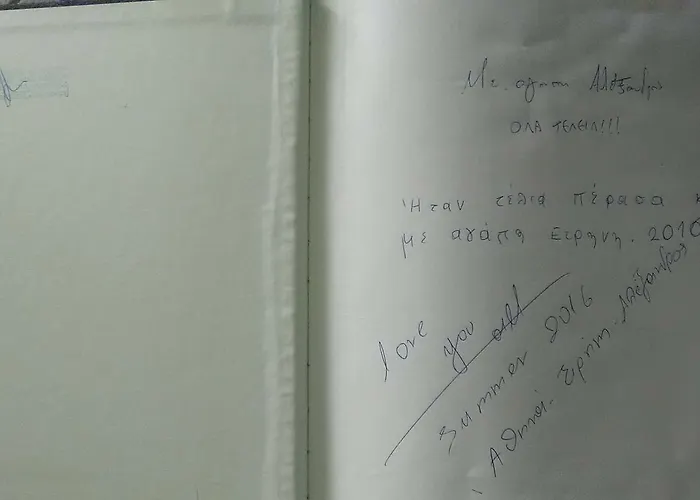 Με αγάπη Αλέξανδρος
ΟΛΑ ΤΕΛΕΙΑ!!!
Ήταν τέλια πέρασα κ
με αγάπη Ειρηνη. 2016
love you all
Summer 2016
Αθηνά- Ειρήνη- Αλέξανδρος